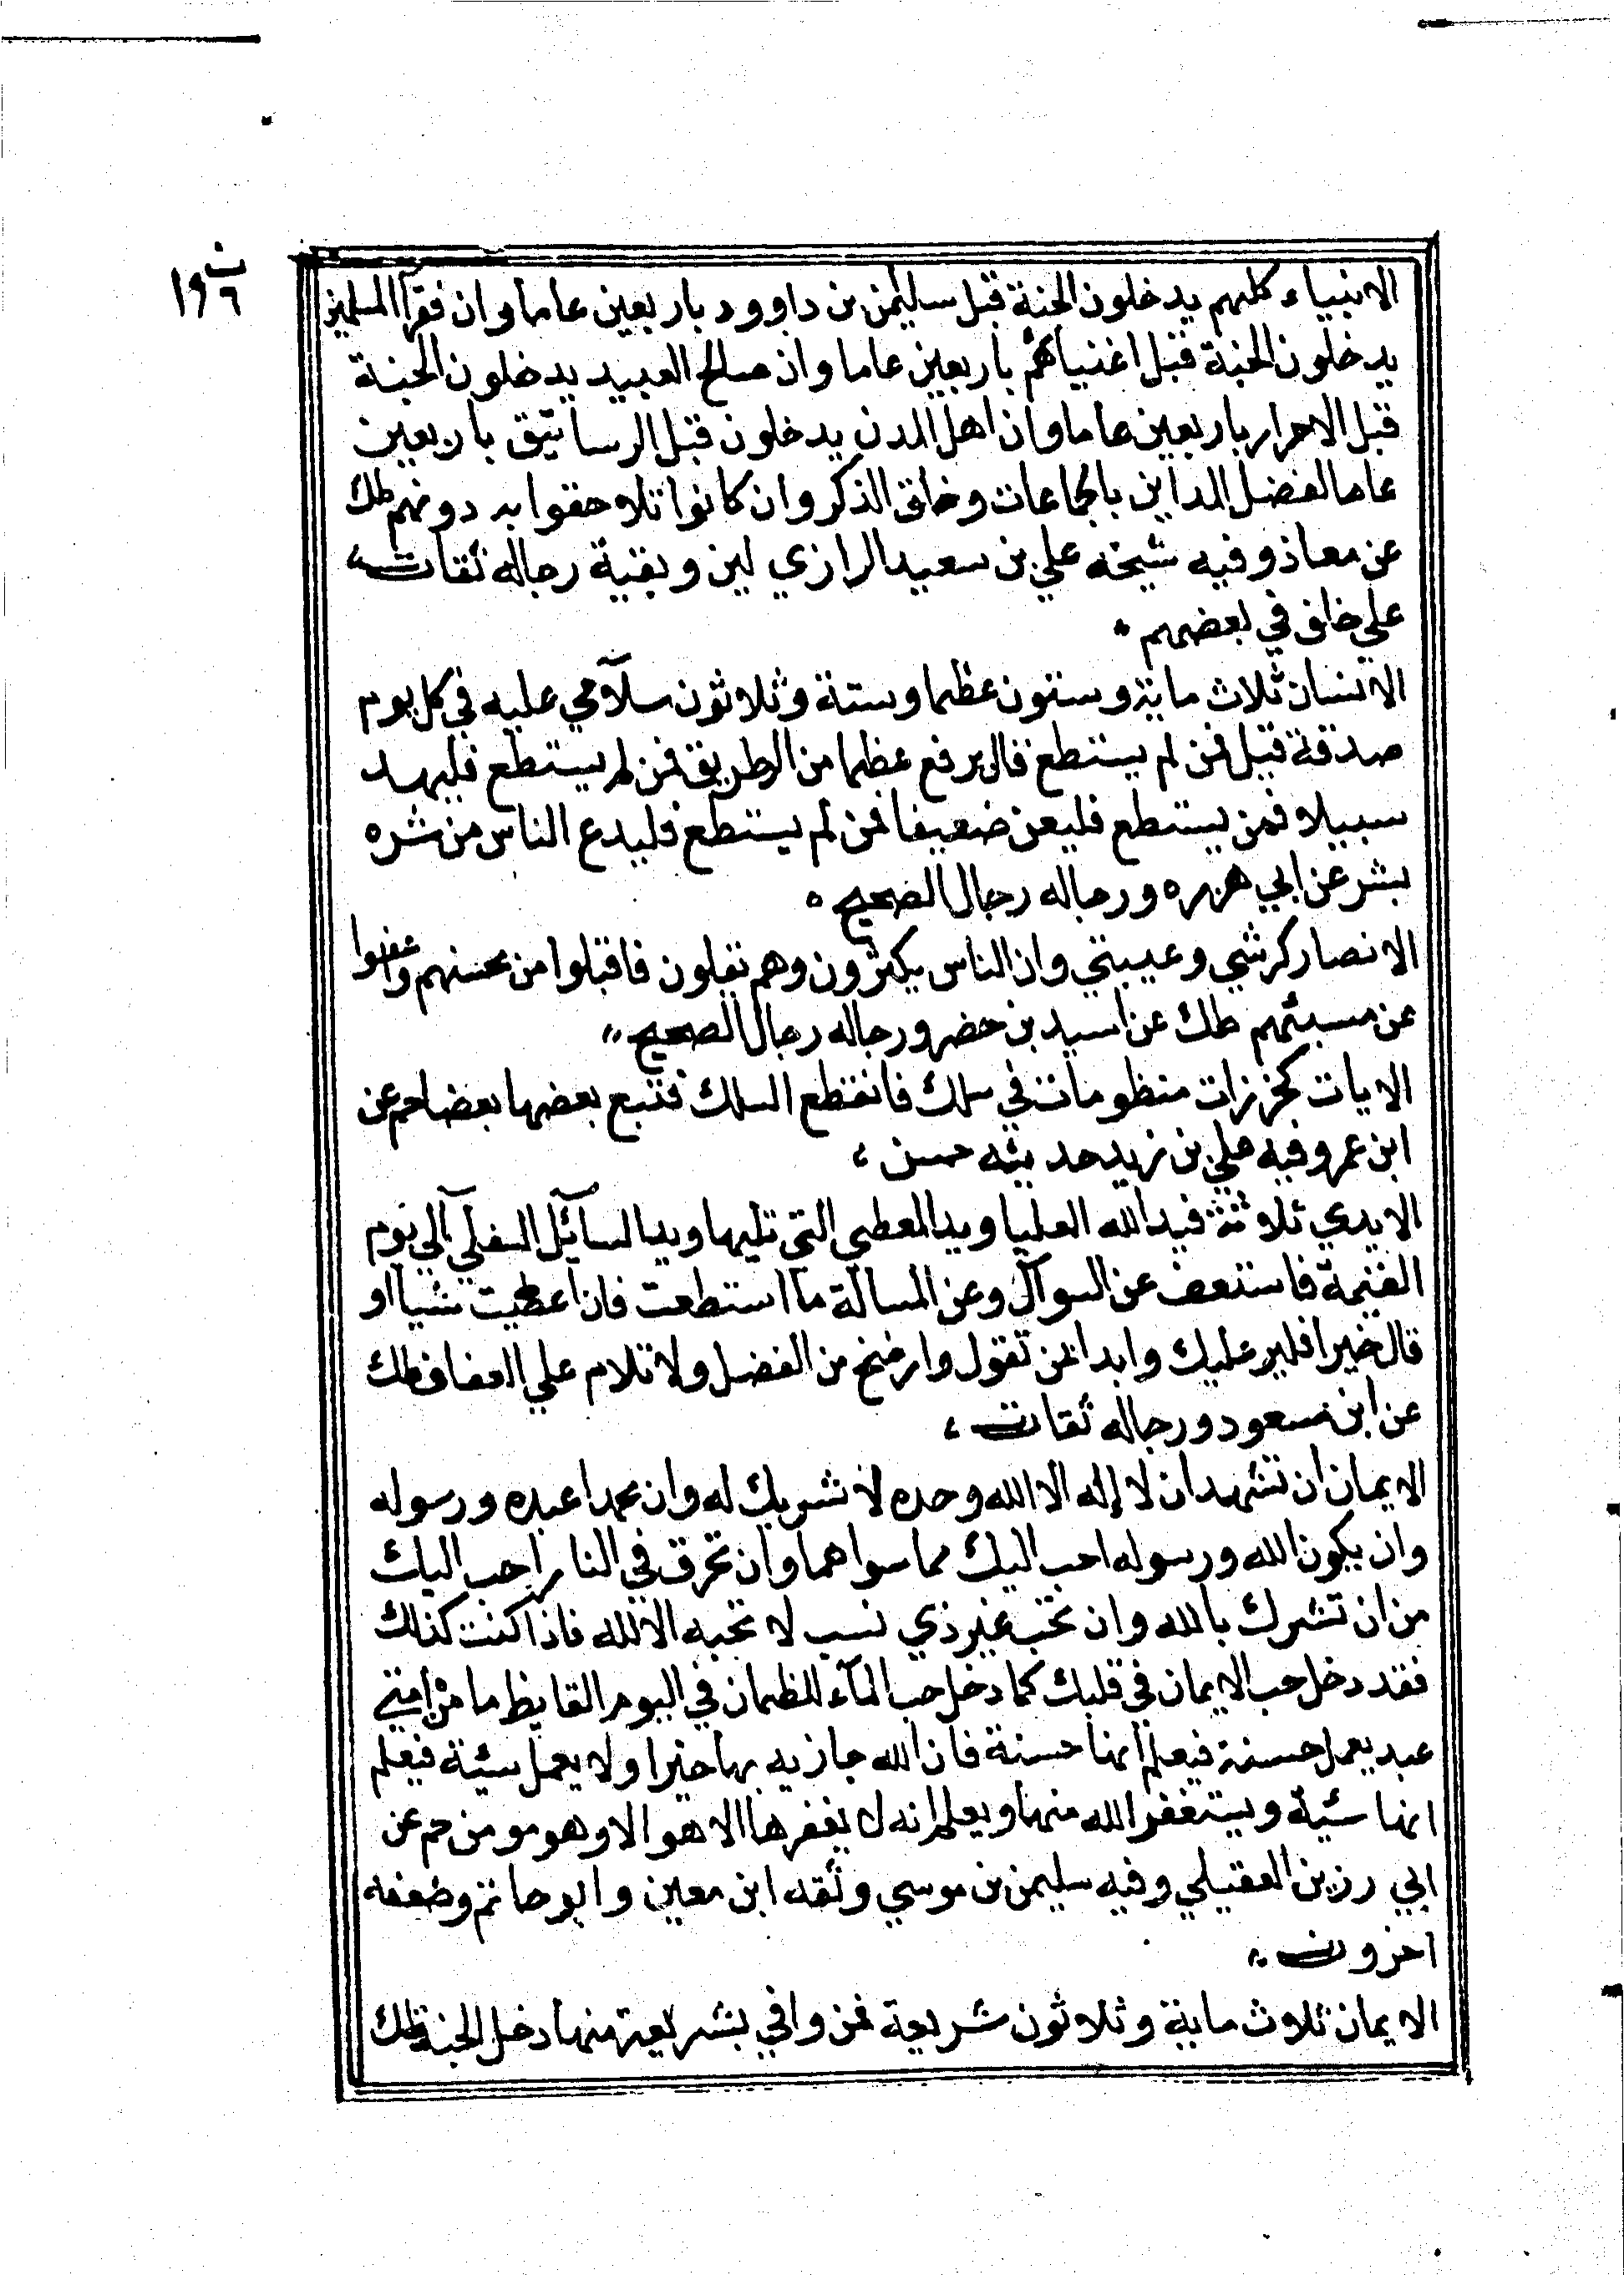 ث
١٩٦
الانبياء كلهم يدخلون الجنة قبل سليمن بن داوود باربعين عاما وان فقرآ المسلمين
يدخلون الجنة قبل اغنيائهم باربعين عاما وان صالح العبيد يدخلون الجنة
قبل الاحرار باربعين عاما وان اهل المدن يدخلون قبل الرساتيق باربعين
عاما لفضل المداين بالجماعات وحلق الذكر وان كانوا تلاحقوا به دونهم طك
عن معاذ وفيه شيخه علي بن سعيد الرازي لين وبقية رجاله ثقات
علي خلف في بعضهم
الانسان ثلاث ماية وستون عظما وستة وثلاثون سلآمي عليه في كل يوم
صدقة قيل فمن لم يستطع قال يرفع عظما من الطريق فمن لم يستطع فليهد
سبيلا فمن يستطع فليعن ضعيفا فمن لم يستطع فليدع الناس من شره
بشر عن ابي هريره ورجاله رجال الصحيح
الانصار كرشي وعيبتي وان الناس يكثرون وهم يقلون فاقبلوا من محسنهم واعفوا
عن مسيئهم طك عن اسيد بن حضر ورجاله رجال الصحيح
الايات كخرزات منظومات في سلك فانقطع السلك فتبع بعضها بعضا حم عن
ابن عمر وفيه علي بن زيد حديثه حسن
الايدي ثلاثة فيد الله العليا ويد المعطي التي تليها ويد السآئل السفلي آلي يوم
القيمة فاستعف عن السوآل وعن المسالة ما استطعت فان اعطيت شيا او
قال خيرا فلير عليك وابدا بمن تعول وارضخ من الفضل ولا تلام علي العفاف طك
عن ابن مسعود ورجاله ثقات
الايمان ان تشهد ان لا إله الا الله وحده لا شريك له وان محمدا عبده ورسوله
وان يكون الله ورسوله احب اليك مما سواهما وان تحرق في النار احب اليك
من ان تشرك بالله وان تحب غير ذي نسب لا تحبه الا لله فاذا كنت كذلك
فقد دخل حب الايمان في قلبك كما دخل حب المآء للظمان في اليوم القايظ ما من امتي
عبد يعمل حسنة فيعلم انها حسنة فان الله جازيه بها خيرا ولا يعمل سئية فيعلم
انها سئية ويستغفر الله منها ويعلم انه لا يغفرها الا هو الا وهو مومن حم عن
ابي رزين العقيلي وفيه سليمن بن موسي وثقه ابن معين وابو حاتم وضعفه
اخرون
الايمان ثلاث ماية وثلاثون شريعة فمن وافي بشريعة منها دخل الجنة طك